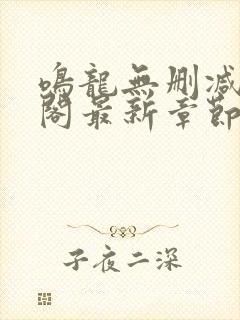 鳴龍無刪減
閣最新章節
子夜二深